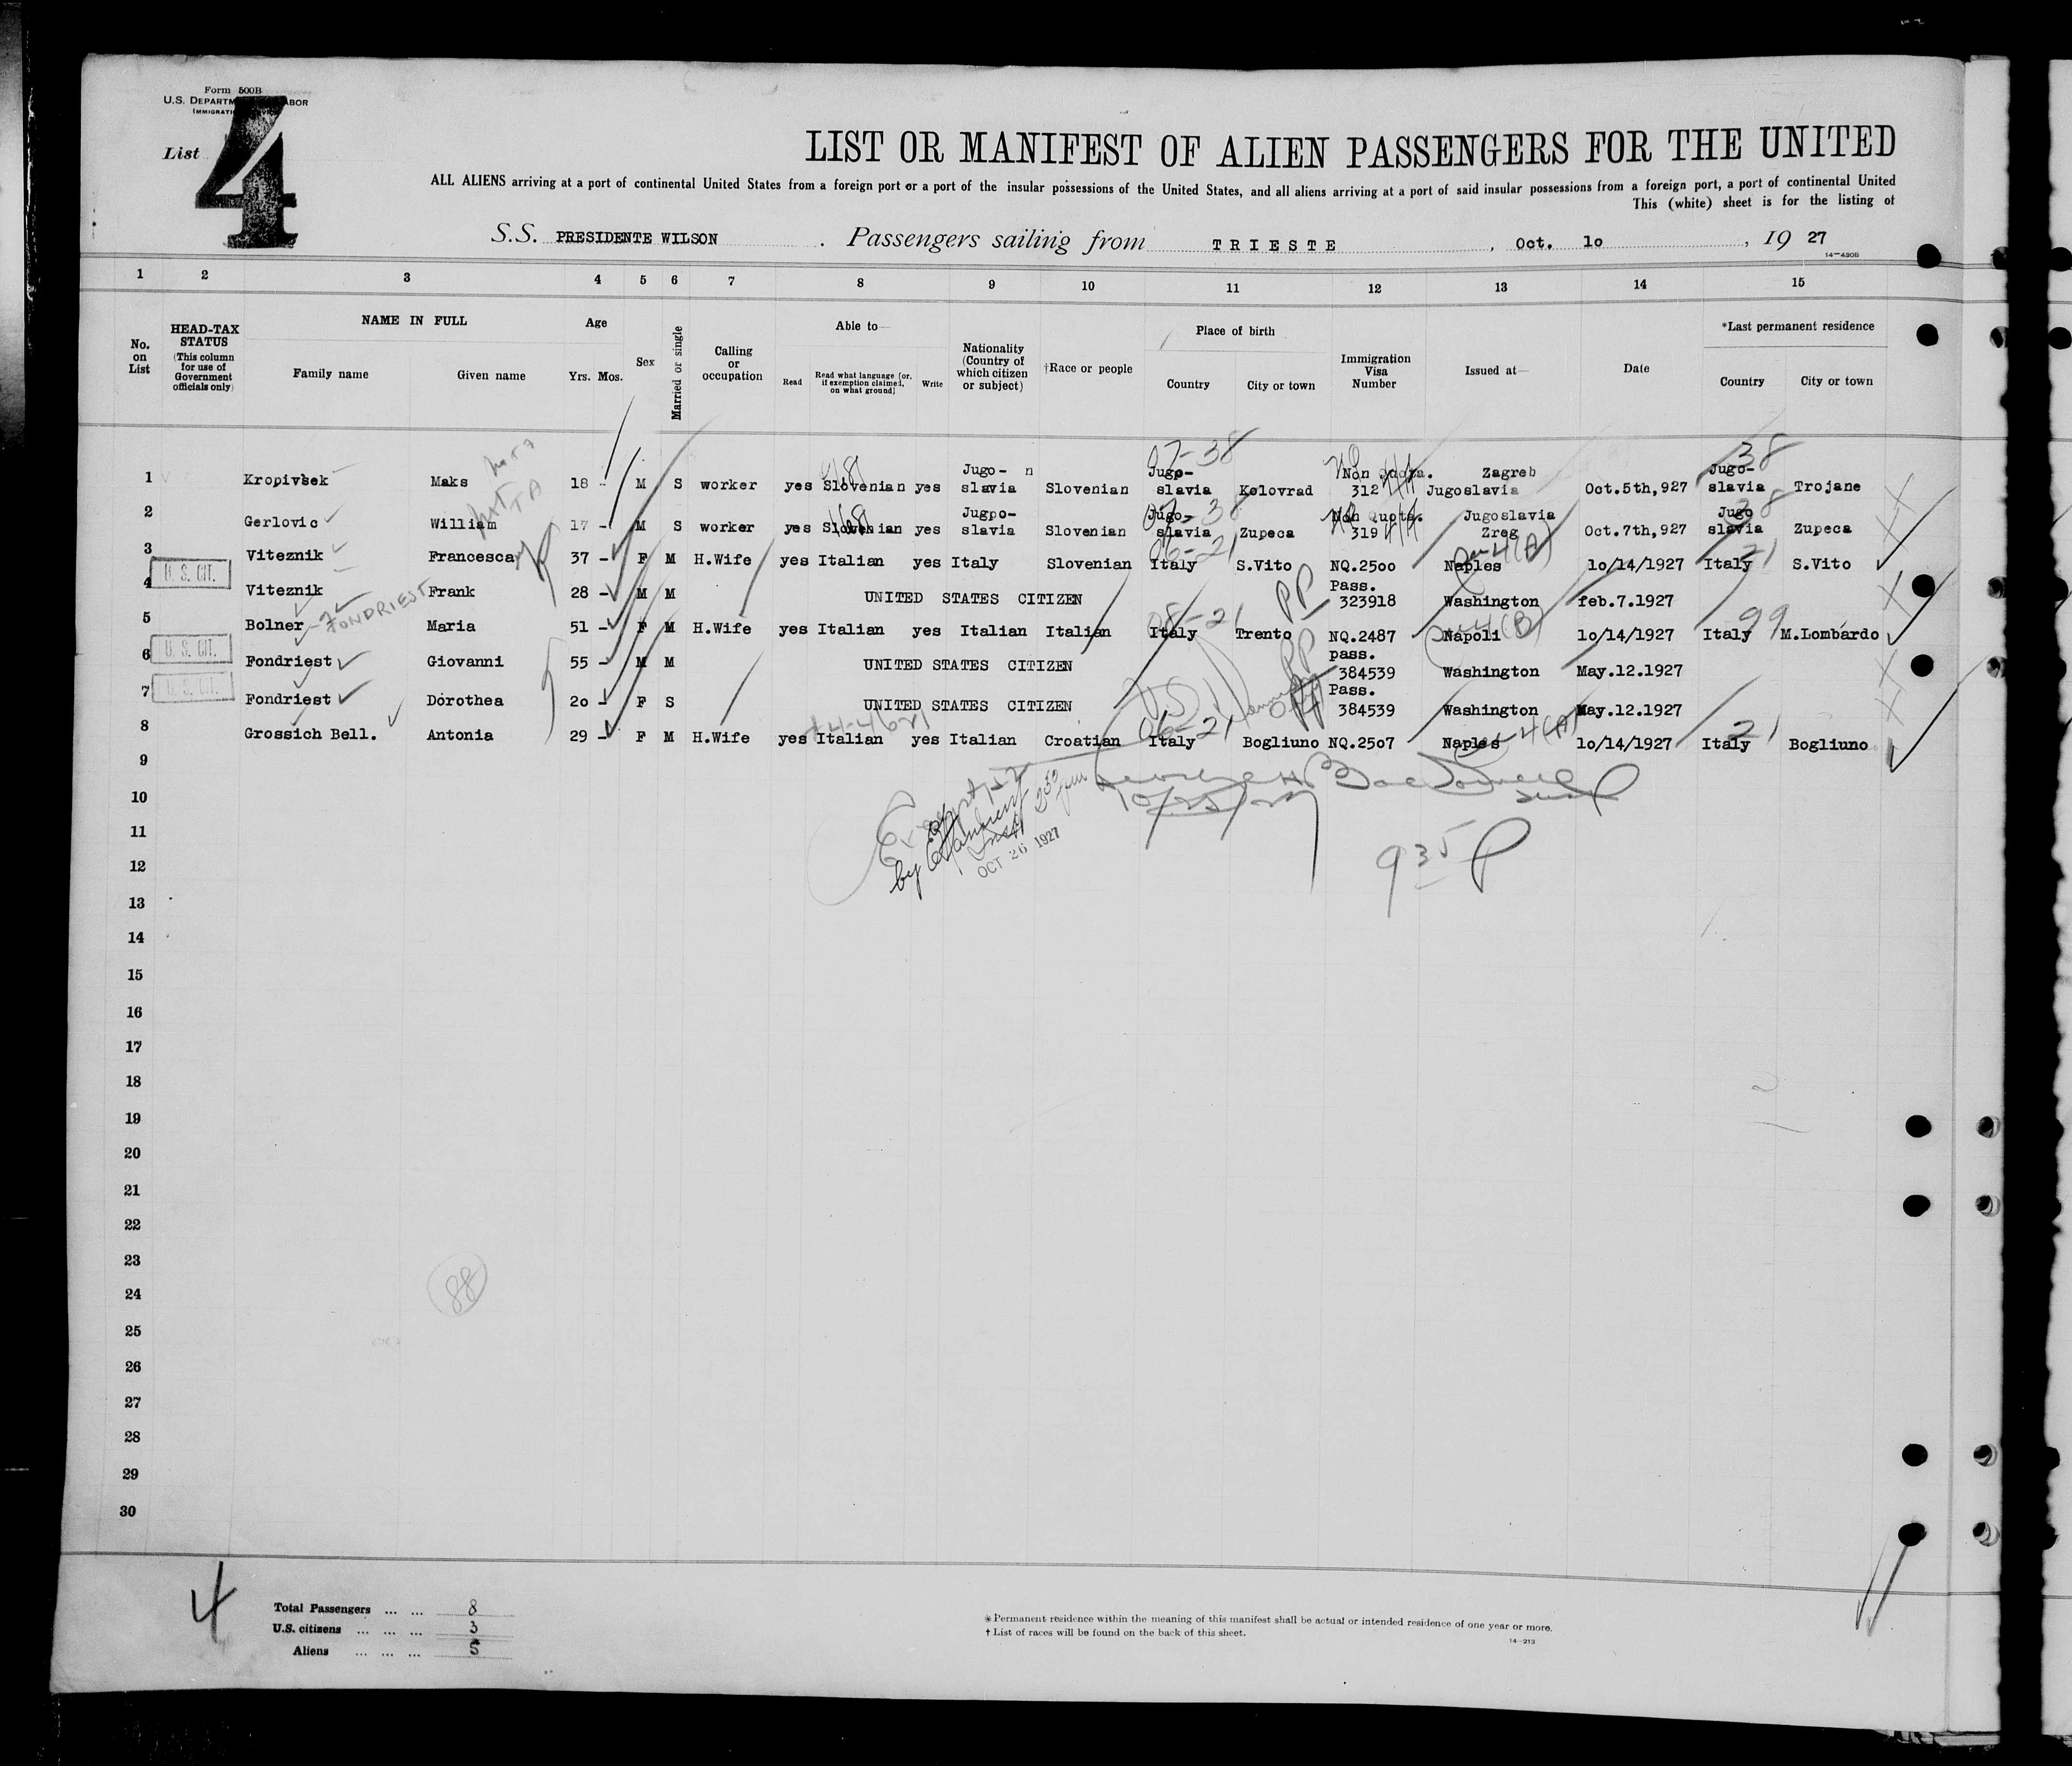 Form 500B
U.S. DEPARTM ABOR
IMMIGRATI
List 4
LIST OR MANIFEST OF ALIEN PASSENGERS FOR THE UNITED
ALL ALIENS arriving at a port of continental United States from a foreign port or a port of the insular possessions of the United States, and all aliens arriving at a port of said insular possessions from a foreign port, a port of continental United
This (white) sheet is for the listing of
S.S. PRESIDENTE WILSON. Passengers sailing from TRIESTE, Oct. 1o, 19 27
14—490B
1 2 3 4 5 6 7 8 9 10 11 12 13 14 15
No. on List
HEAD-TAX STATUS (This column for use of Government officials only)
NAME IN FULL
Family name Given name
Age
Yrs. Mos.
Sex
Married or single
Calling or occupation
Able to—
Read Read what language [or, if exemption claimed, on what ground] Write
Nationality (Country of which citizen or subject)
†Race or people
Place of birth
Country City or town
Immigration Visa Number
Issued at—
Date
*Last permanent residence
Country City or town
1 Kropivsek Maks 18 - M S worker yes Slovenian yes Jugo-slavia Slovenian Jugo-slavia Kolovrad Non quota. 312 Zagreb Jugoslavia Oct.5th,927 Jugo-slavia Trojane
2 Gerlovic William 17 - M S worker yes Slovenian yes Jugpo-slavia Slovenian Jugo-slavia Zupeca Non quota. 319 Jugoslavia Zreg Oct.7th,927 Jugo slavia Zupeca
3 Viteznik Francesca 37 - F M H.Wife yes Italian yes Italy Slovenian Italy S.Vito NQ.25oo Naples 1o/14/1927 Italy S.Vito
4 U. S. CIT. Viteznik Frank 28 - M M UNITED STATES CITIZEN Pass. 323918 Washington feb.7.1927
5 Bolner - FONDRIEST Maria 51 - F M H.Wife yes Italian yes Italian Italian Italy Trento NQ.2487 Napoli 1o/14/1927 Italy M.Lombardo
6 U. S. CIT. Fondriest Giovanni 55 - M M UNITED STATES CITIZEN pass. 384539 Washington May.12.1927
7 U. S. CIT. Fondriest Dorothea 2o - F S UNITED STATES CITIZEN Pass. 384539 Washington May.12.1927
8 Grossich Bell. Antonia 29 - F M H.Wife yes Italian yes Italian Croatian Italy Bogliuno NQ.25o7 Naples 1o/14/1927 Italy Bogliuno
07-38
38
07-38
38
06-21
21
08-21
99
06-21
21
PP
4(A)
4(B)
4(A)
9
10
OCT 26 1927
11
12
9 35 P
13
14
15
16
17
18
19
20
21
22
23
24
88
25
26
27
28
29
30
4
Total Passengers ... ... 8
U.S. citizens ... ... ... 3
Aliens ... ... ... 5
* Permanent residence within the meaning of this manifest shall be actual or intended residence of one year or more.
† List of races will be found on the back of this sheet.
14—213